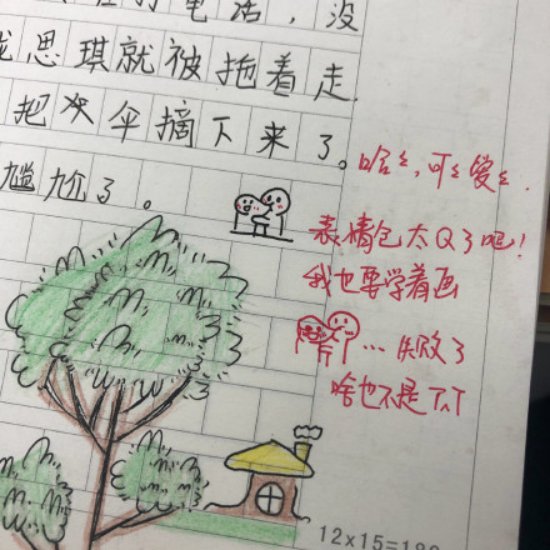 电话，没
思琪就被拖着走
把伞摘下来了。
尴尬了。
哈〻，可〻爱〻.
表情包太Q了吧！
我也要学着画
…失败了
啥也不是 T^T
12×15=180